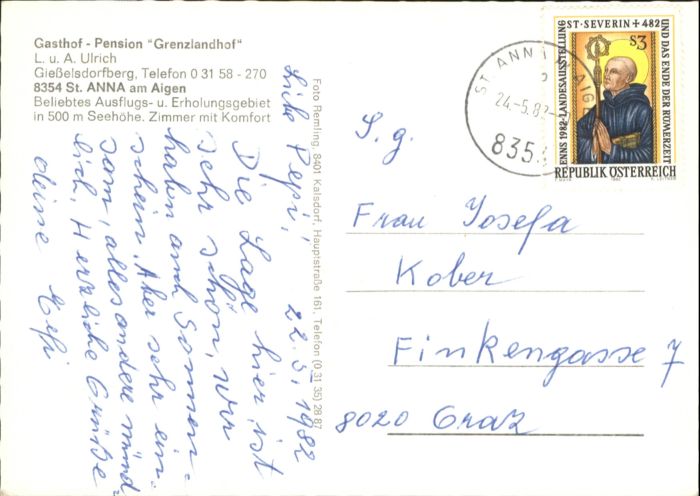 Gasthof - Pension "Grenzlandhof"
L. u. A. Ulrich
Gießelsdorfberg, Telefon 0 31 58 - 270
8354 St. ANNA am Aigen
Beliebtes Ausflugs- u. Erholungsgebiet
in 500 m Seehöhe. Zimmer mit Komfort
Foto Remling, 8401 Kalsdorf, Hauptstraße 161, Telefon (0 31 35) 28 87
22. 5. 1982
Liebe Pepi!
Die Lage hier ist
sehr schön, wir
haben auch Sonnen-
schein. Aber sehr ein-
sam, alles andere münd-
lich. Herzliche Grüße
deine
ST. ANNA AIGEN
24.-5.82
835
ST. SEVERIN + 482
ENNS 1982 - LANDESAUSSTELLUNG
UND DAS ENDE DER RÖMERZEIT
S3
REPUBLIK ÖSTERREICH
1982
S. g.
Frau Josefa
Kober
Finkengasse 7
8020 Graz